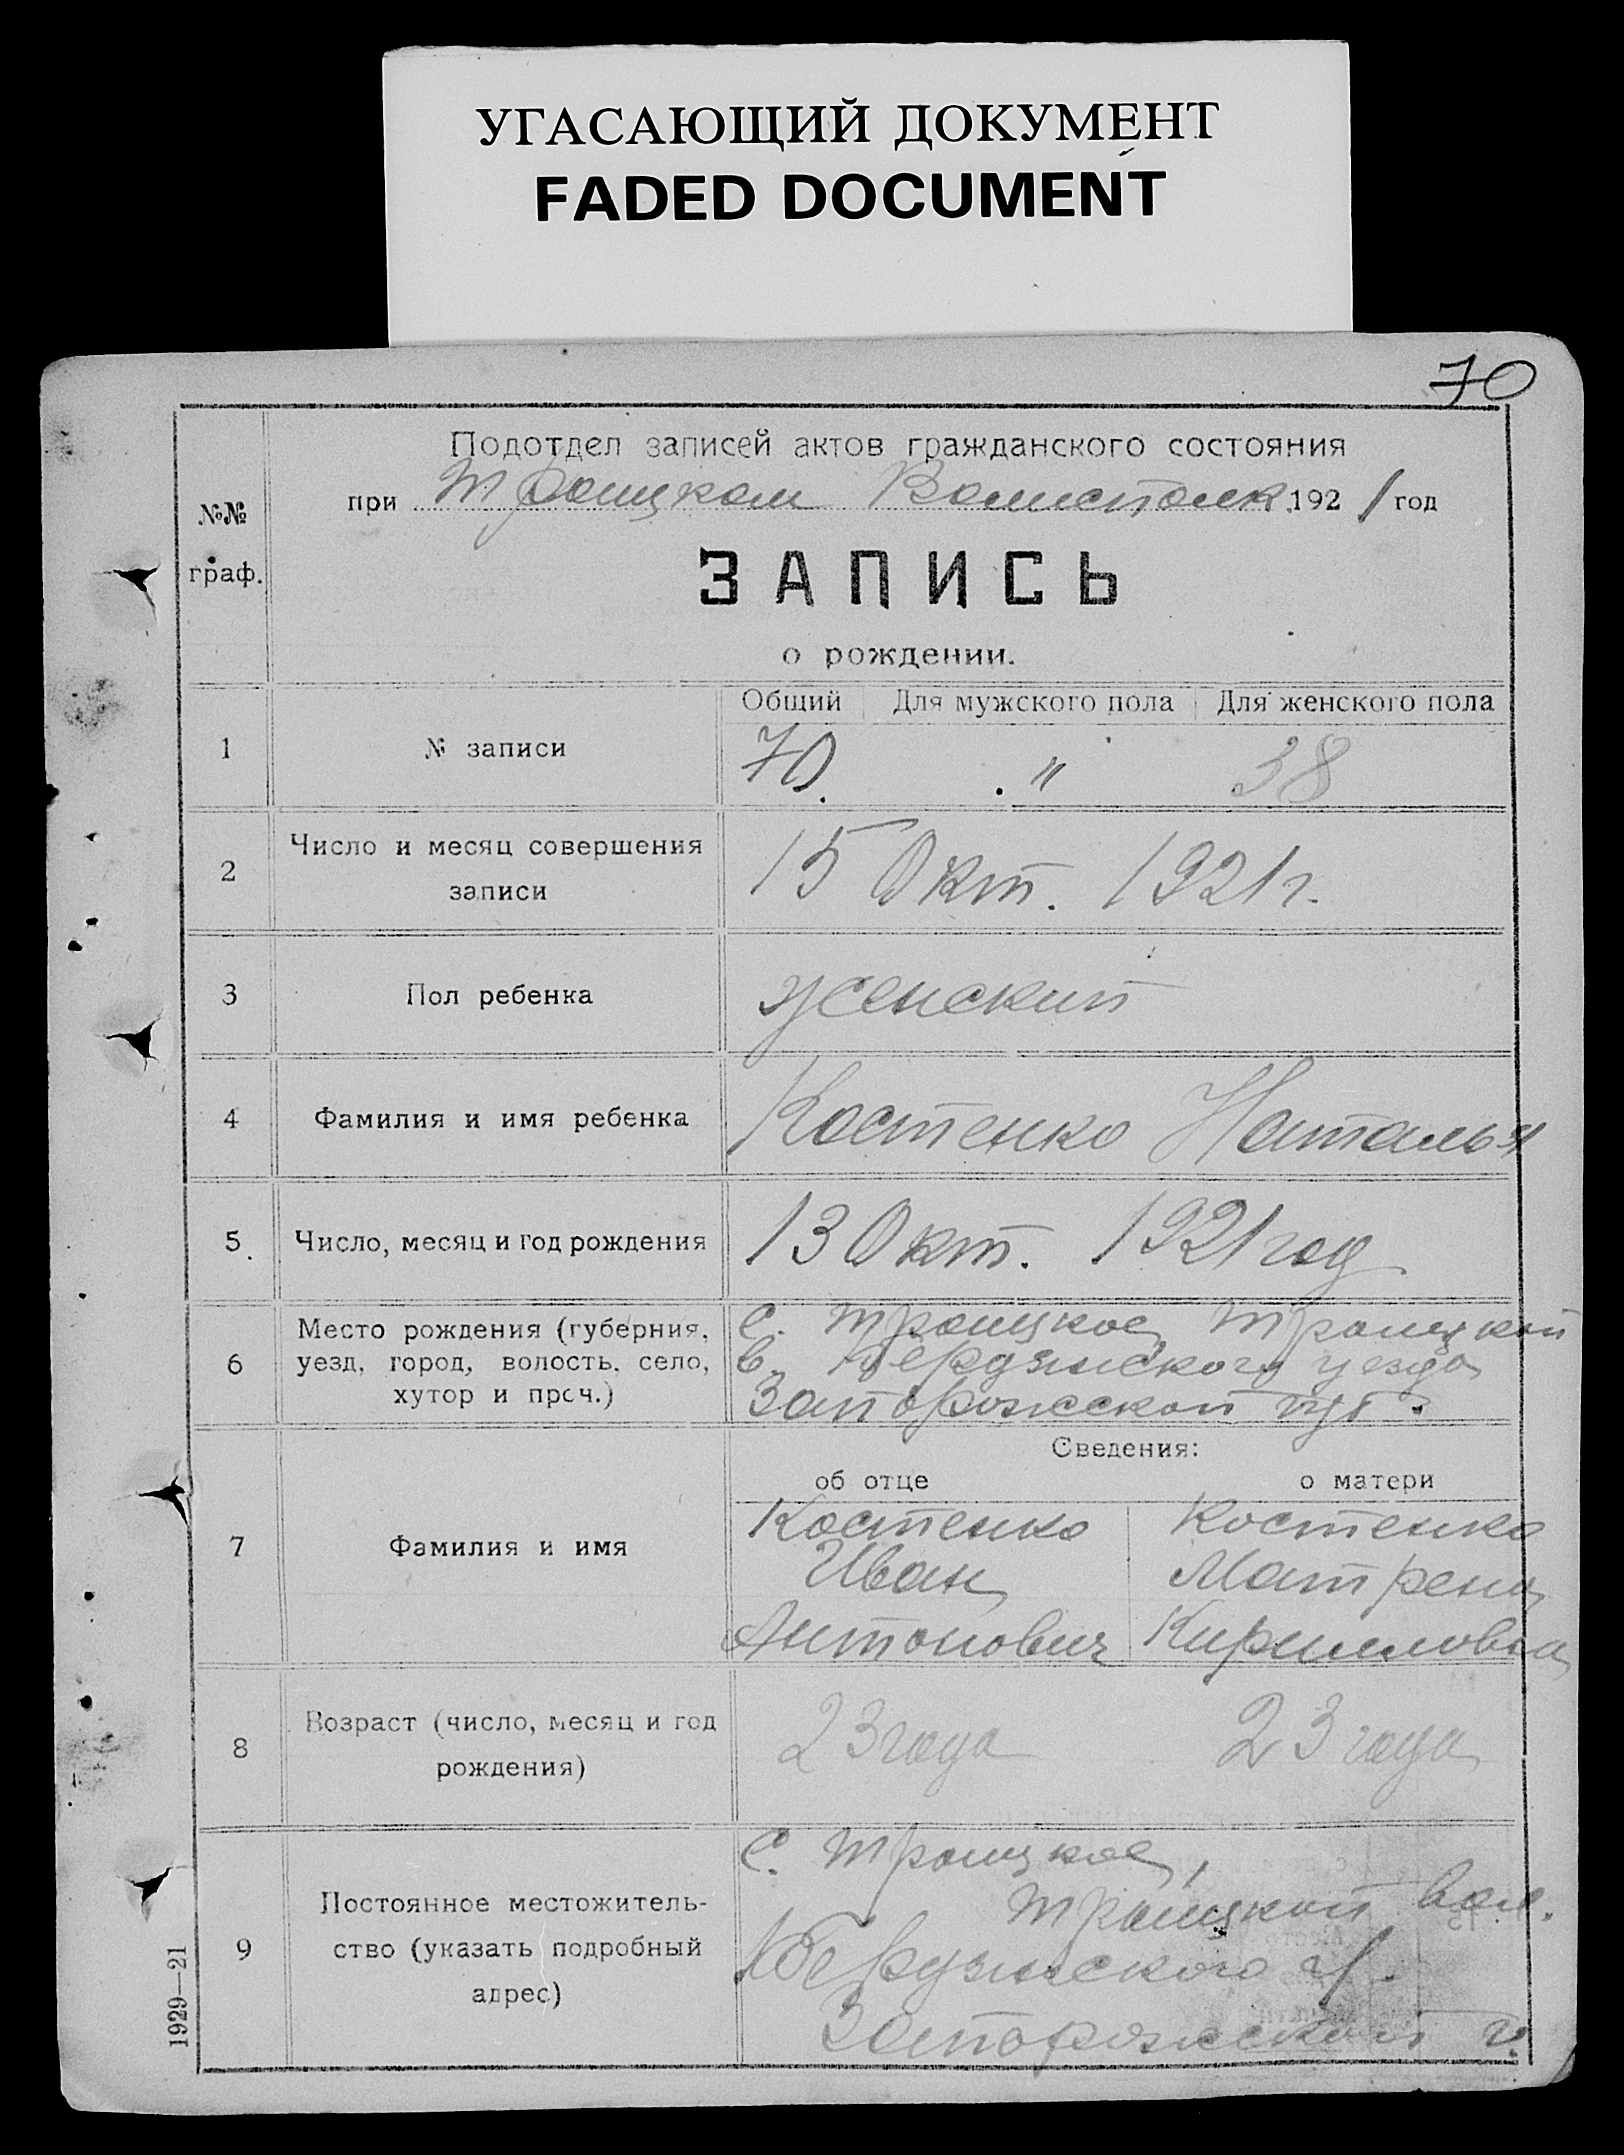 УГАСАЮЩИЙ ДОКУМЕНТ
FADED DOCUMENT
70
Подотдел записей актов гражданского состояния
при Троицком Волисполк. 1921 год
№№
граф.
ЗАПИСЬ
о рождении.
Общий Для мужского пола Для женского пола
1 № записи 70. . " 38
2 Число и месяц совершения
записи
15 Окт. 1921 г.
3 Пол ребенка женский
4 Фамилия и имя ребенка Костенко Наталья
5. Число, месяц и год рождения 13 Окт. 1921 год
6 Место рождения (губерния,
уезд, город, волость, село,
хутор и проч.)
с. Троицкое, Троицкой
в. Бердянского уезда
Запорожской губ.
Сведения:
об отце о матери
7 Фамилия и имя
Костенко
Иван
Антонович
Костенко
Матрена
Кирилловна
8 Возраст (число, месяц и год
рождения)
23 года 23 года
9 Постоянное местожитель-
ство (указать подробный
адрес)
С. Троицкое,
Троицкой вол.
Бердянского у.
Запорожской г.
1929—21